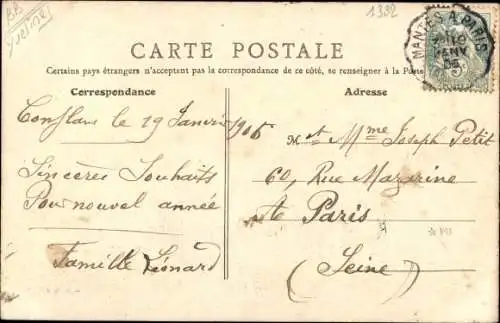 B.B.
Yvelines
1382
MANTES A PARIS
CARTE POSTALE
Certains pays étrangers n'acceptent pas la correspondance de ce côté, se renseigner à la Poste
Correspondance
Adresse
Conflans le 19 Janvier 1906
Sincères Souhaits
Pour nouvel année
Famille Léonard
M et Mme Joseph Petit
60, Rue Mazarine
Paris
(Seine)